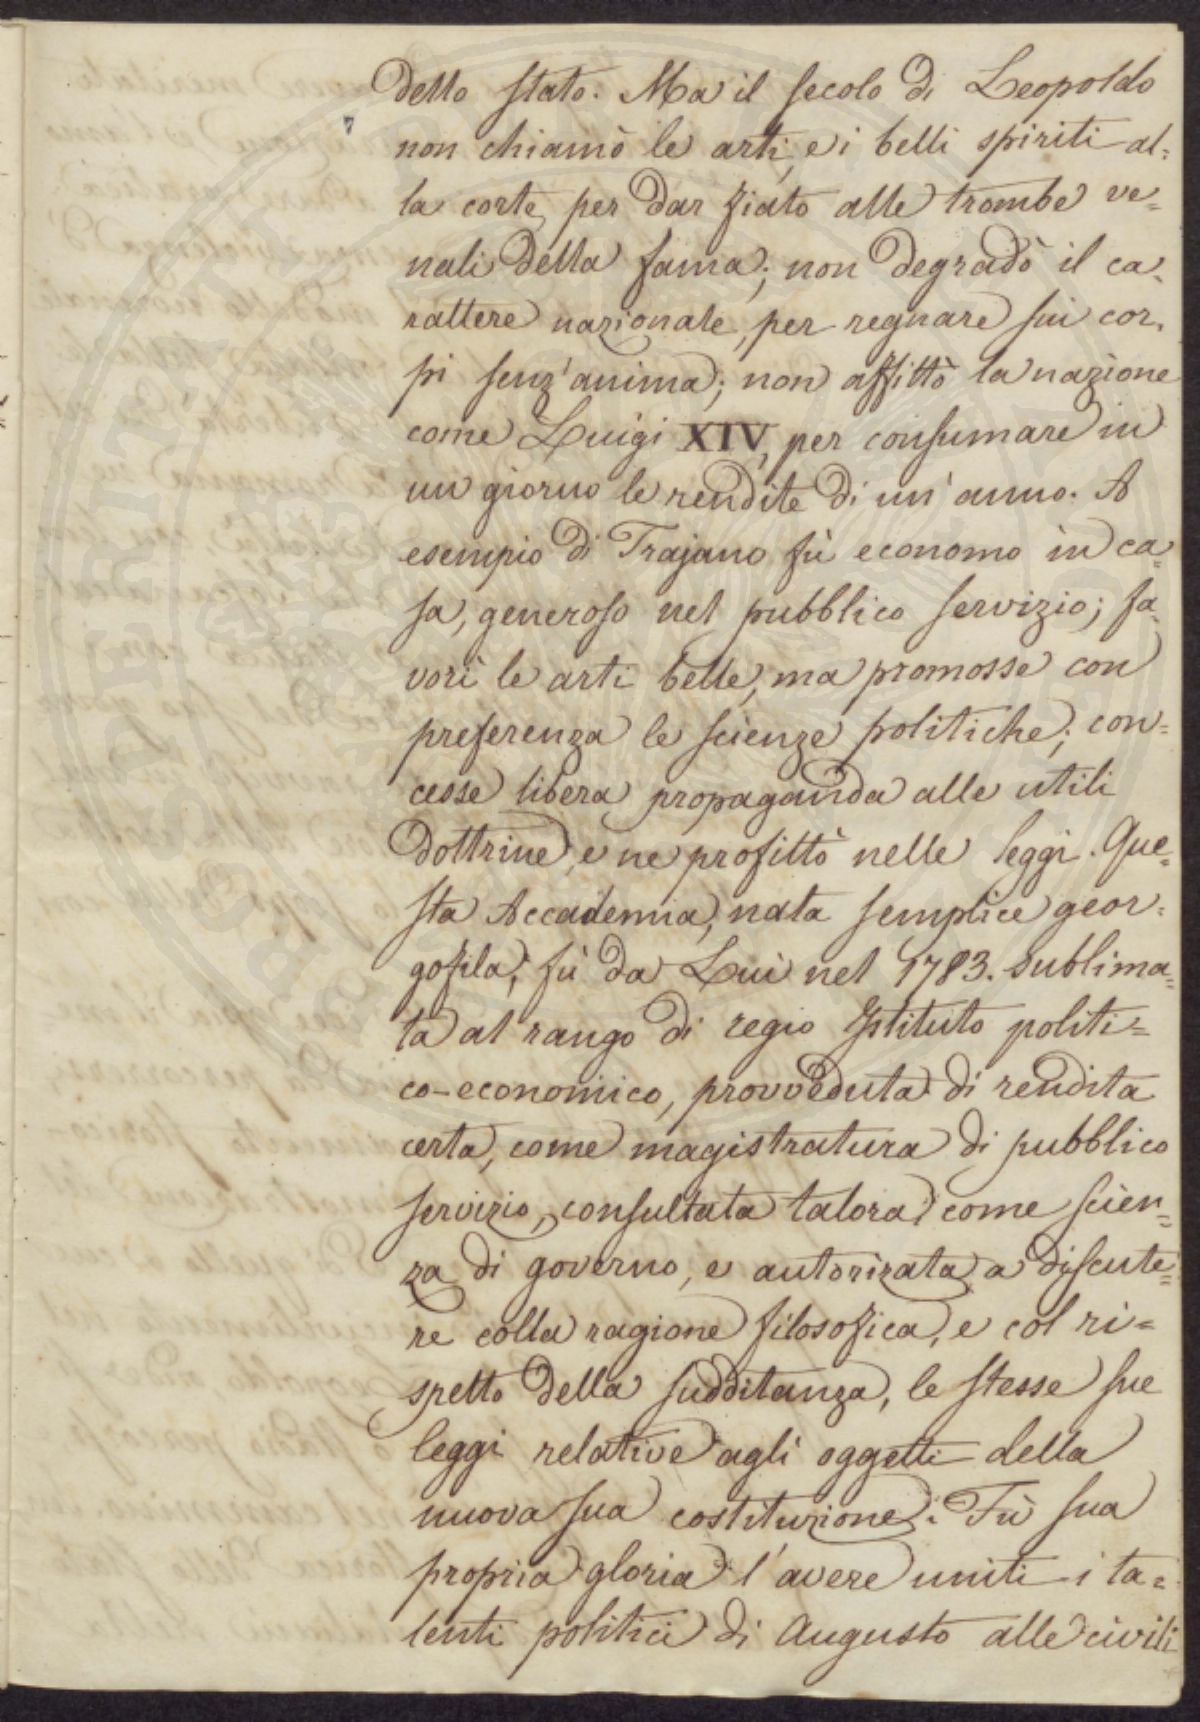 dello Stato. Ma il secolo di Leopoldo
non chiamò le arti, e i belli spiriti al=
la corte, per dar fiato alle trombe ve=
nali della fama; non degradò il ca=
rattere nazionale, per regnare sui cor=
pi senz'anima; non affittò la nazione
come Luigi XIV, per consumare in
un giorno le rendite di un'anno. A
esempio di Trajano fù economo in ca=
sa, generoso nel pubblico servizio; fa=
vorì le arti belle, ma promosse con
preferenza le scienze politiche; con=
cesse libera propaganda alle utili
dottrine, e ne profittò nelle leggi. Que=
sta Accademia, nata semplice geor=
gofila, fù da Lui nel 1783. sublima=
ta al rango di regio Istituto politi=
co-economico, provveduta di rendita
certa, come magistratura di pubblico
servizio, consultata talora come scien=
za di governo, e autorizata a discute=
re colla ragione filosofica, e col ri=
spetto della sudditanza, le stesse sue
leggi relative agli oggetti della
nuova sua costituzione. Fù sua
propria gloria l'avere uniti i ta=
lenti politici di Augusto alle civili